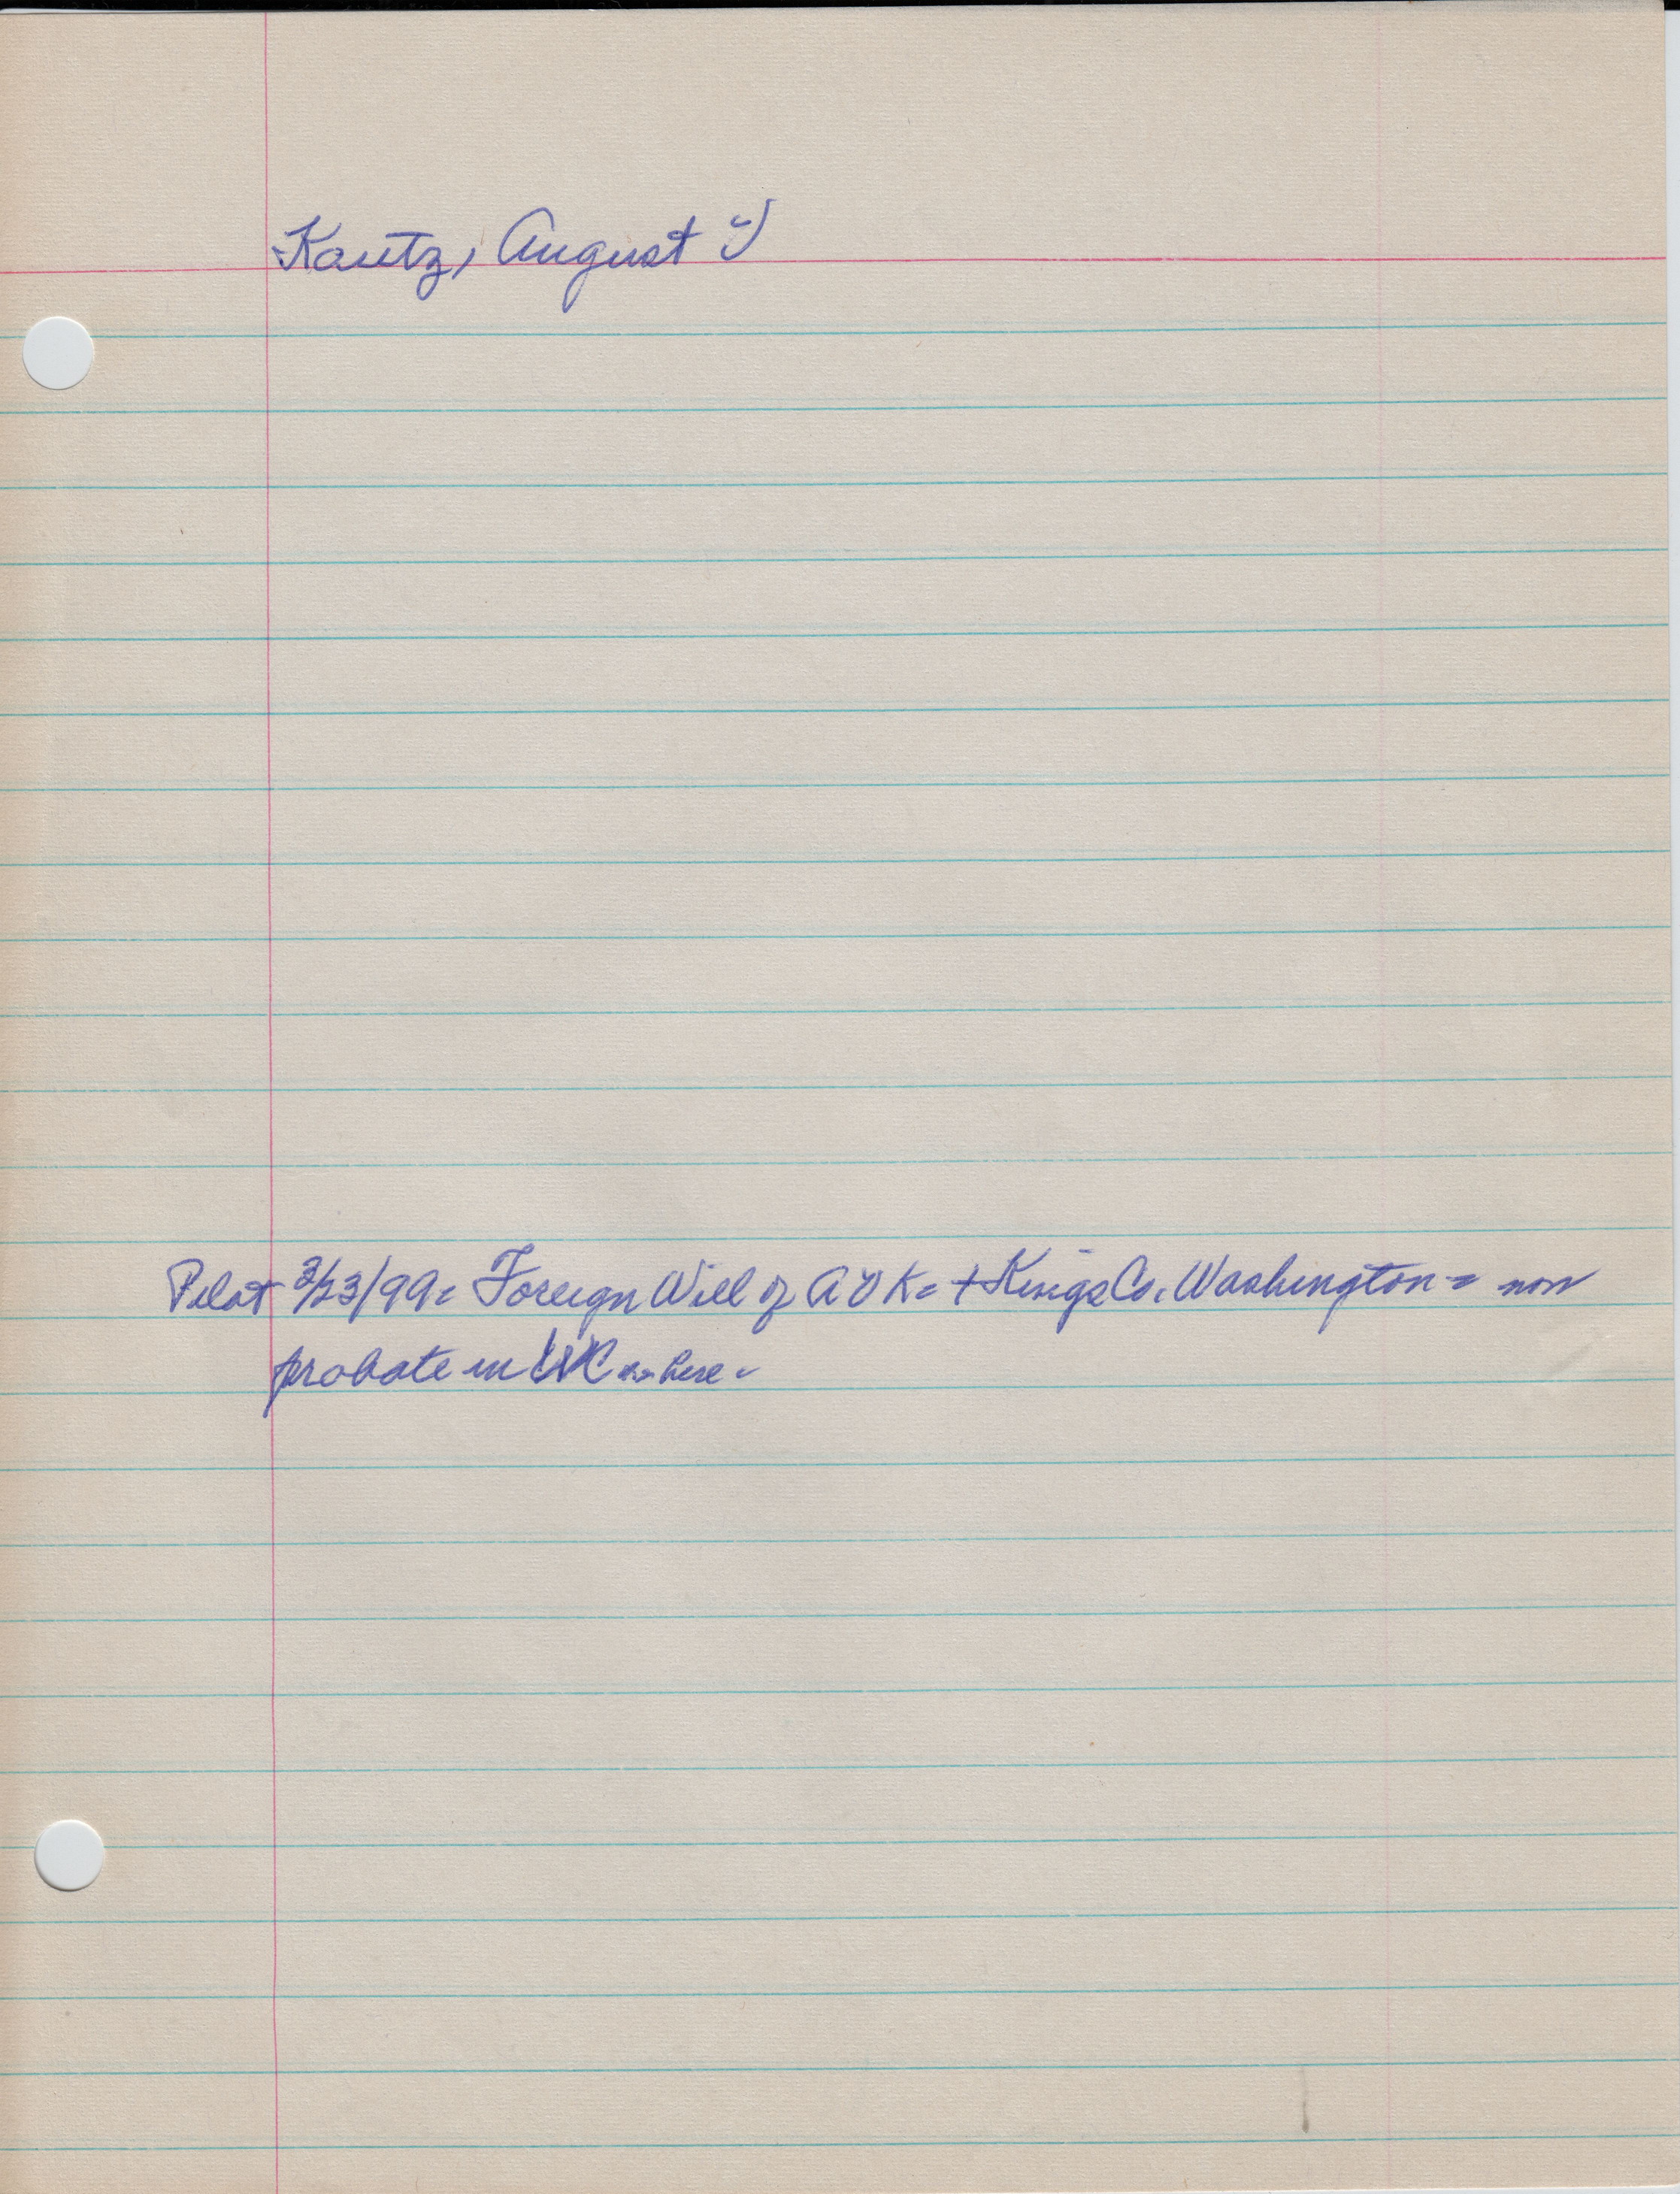 Kautz, August V
Pilot 3/23/99 = Foreign Will of A V K = + Kings Co. Washington = now
probate in WC as here -